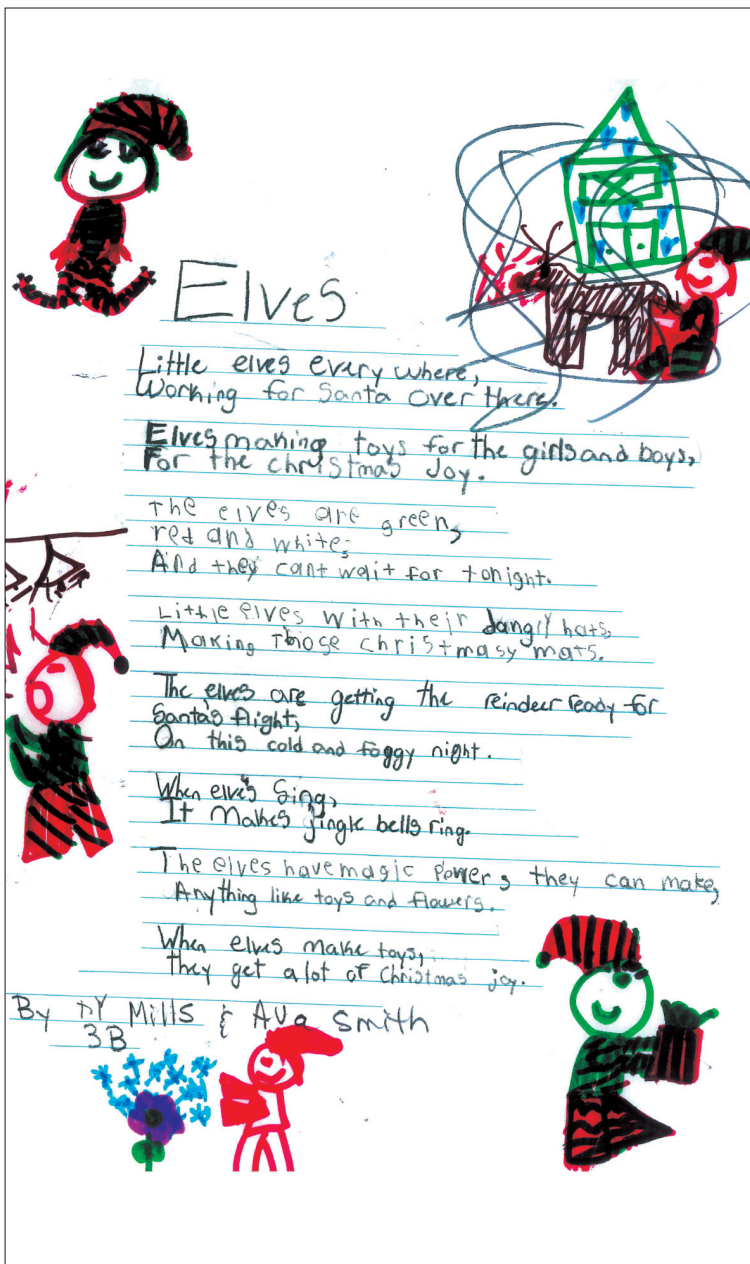 Elves
Little elves every where,
Working for Santa over there.
Elves making toys for the girls and boys,
For the christmas Joy.
The elves are green,
red and white,
And they cant wait for tonight.
Little elves with their dangly hats,
Making those christmasy mats.
The elves are getting the reindeer ready for
Santa's flight,
On this cold and foggy night.
When elves Sing,
It makes jingle bells ring.
The elves have magic powers they can make,
Anything like toys and flowers.
When elves make toys,
they get a lot of Christmas joy.
By Mills & Ava Smith
3B